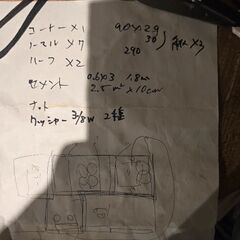 コーナー×1
ノースル×7
ハーフ×2
90×129
30
290
セメント 0.6×3 1.8m
2.5m² ×10cm
ナット
ワッシャー 3/8W 2種